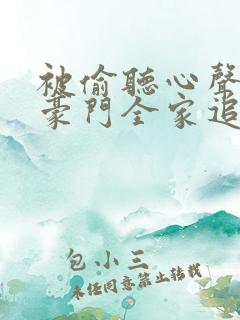 被偷聽心聲
豪門全家追
包小三
未經同意禁止轉載